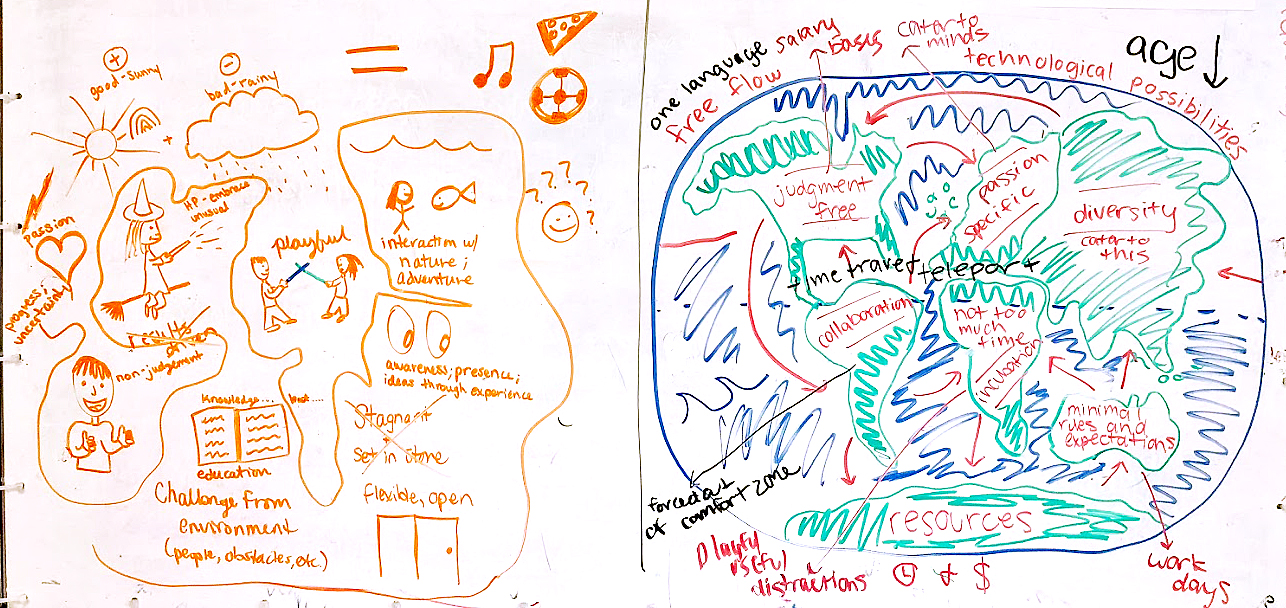 good-sunny
bad-rainy
HP-embrace
unusual
passion
progress;
uncertainty
playful
interaction w/
nature;
adventure
results
driven
non-judgement
awareness; presence;
ideas through experience
knowledge....
education
Stagnant
set in stone
flexible, open
Challenge from
environment
(people, obstacles, etc.)
? ? ? ? ?
one language
free flow
salary
bases
cater to
minds
technological
possibilities
age ↓
judgment
free
passion
specific
diversity
cater to
this
time travel
teleport
collaboration
not too
much
time
incubation
minimal
rules and
expectations
forced out
of comfort zone
resources
playful
useful
distractions
+ $
work
days